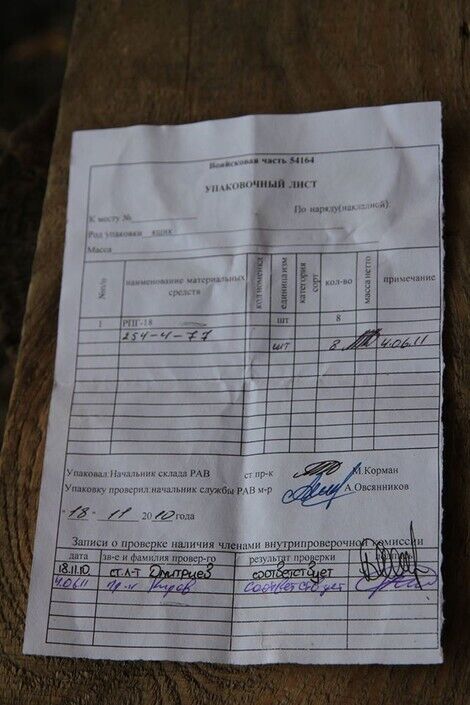 Войсковая часть 54164
УПАКОВОЧНЫЙ ЛИСТ
К месту № По наряду(накладной).
Род упаковки ящик
Масса
№п/п наименование материальных средств код номенкл единица изм категория сорт кол-во масса нетто примечание
1 РПГ-18 шт 8
254-4-77 шт 8 4.06.11
Упаковал:Начальник склада РАВ ст пр-к М.Корман
Упаковку проверил:начальник службы РАВ м-р А.Овсянников
-18- -11- 2010 года
Записи о проверке наличия членами внутрипроверочной комиссии
дата зв-е и фамилия провер-го результат проверки
18.11.10 ст.л-т Дмитриев соответствует
4.06.11 пр-к соответствует